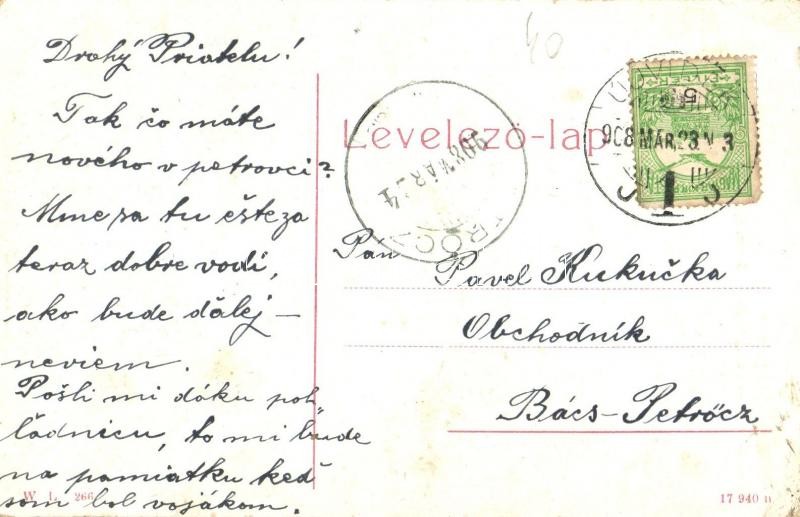 40
Drahý Priatelu!
Tak čo máte
nového v petrovci?
Mne sa tu ešte za
teraz dobre vodí,
ako bude ďálej —
neviem.
Pošli mi dáku poh-
ľadnicu, to mi bude
na pamiatku keď
som bol vojákom.
W. L. 266
Levelező-lap
908 MAR. 23 N 3
1
908 MAR 24
5
FILLÉR
Pán Pavel Kukučka
Obchodník
Bács-Petrőcz
17 940 n